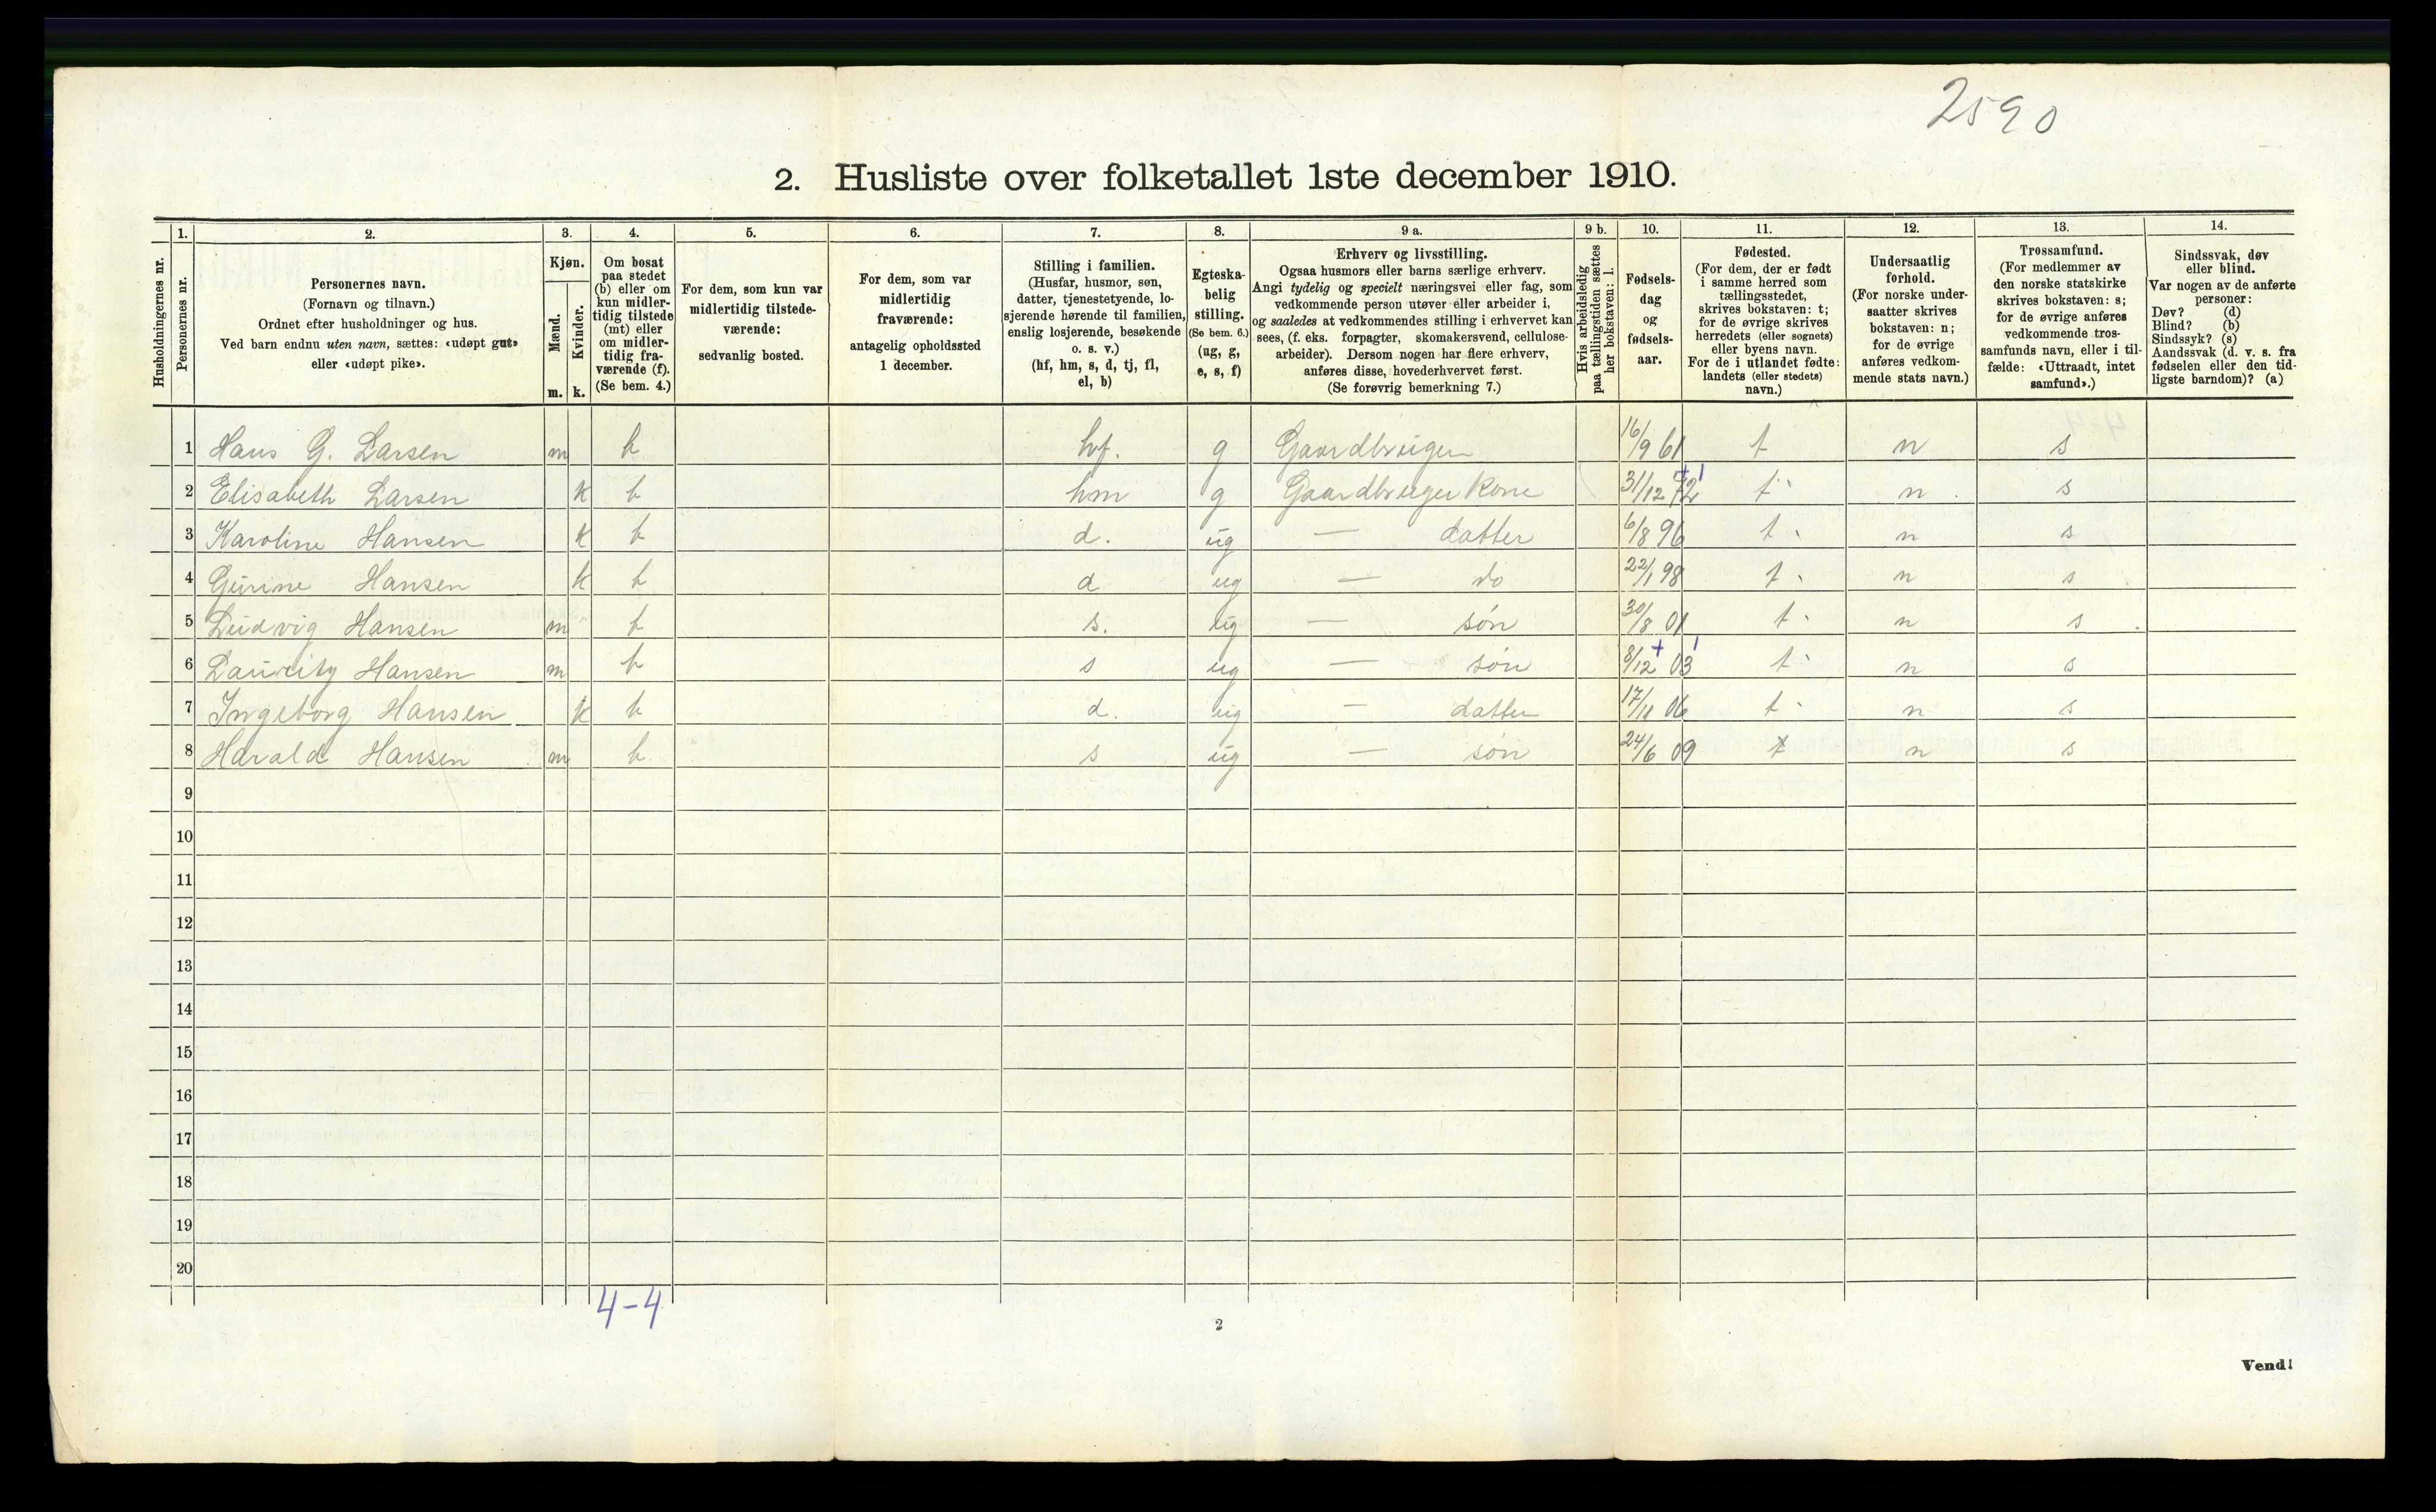 2590
2. Husliste over folketallet 1ste december 1910.
Husholdningernes nr.
1.
Personernes nr.
2.
Personernes navn.
(Fornavn og tilnavn.)
Ordnet efter husholdninger og hus.
Ved barn endnu uten navn, sættes: «udøpt gut»
eller «udøpt pike».
3.
Kjøn.
Mænd.
Kvinder.
m. k.
4.
Om bosat
paa stedet
(b) eller om
kun midler-
tidig tilstede
(mt) eller
om midler-
tidig fra-
værende (f).
(Se bem. 4.)
5.
For dem, som kun var
midlertidig tilstede-
værende:
sedvanlig bosted.
6.
For dem, som var
midlertidig
fraværende:
antagelig opholdssted
1 december.
7.
Stilling i familien.
(Husfar, husmor, søn,
datter, tjenestetyende, lo-
sjerende hørende til familien,
enslig losjerende, besøkende
o. s. v.)
(hf, hm, s, d, tj, fl,
el, b)
8.
Egteska-
belig
stilling.
(Se bem. 6.)
(ug, g,
e, s, f)
9 a.
Erhverv og livsstilling.
Ogsaa husmors eller barns særlige erhverv.
Angi tydelig og specielt næringsvei eller fag, som
vedkommende person utøver eller arbeider i,
og saaledes at vedkommendes stilling i erhvervet kan
sees, (f. eks. forpagter, skomakersvend, cellulose-
arbeider). Dersom nogen har flere erhverv,
anføres disse, hovederhvervet først.
(Se forøvrig bemerkning 7.)
9 b.
Hvis arbeidsledig
paa tællingstiden sættes
her bokstaven: l.
10.
Fødsels-
dag
og
fødsels-
aar.
11.
Fødested.
(For dem, der er født
i samme herred som
tællingsstedet,
skrives bokstaven: t;
for de øvrige skrives
herredets (eller sognets)
eller byens navn.
For de i utlandet fødte:
landets (eller stedets)
navn.)
12.
Undersaatlig
forhold.
(For norske under-
saatter skrives
bokstaven: n;
for de øvrige
anføres vedkom-
mende stats navn.)
13.
Trossamfund.
(For medlemmer av
den norske statskirke
skrives bokstaven: s;
for de øvrige anføres
vedkommende tros-
samfunds navn, eller i til-
fælde: «Uttraadt, intet
samfund».)
14.
Sindssvak, døv
eller blind.
Var nogen av de anførte
personer:
Døv? (d)
Blind? (b)
Sindssyk? (s)
Aandssvak (d. v. s. fra
fødselen eller den tid-
ligste barndom)? (a)
1 Hans G. Larsen m b hf. g Gaardbruger 16/9 61 t n s
2 Elisabeth Larsen k b hm g Gaardbruger Kone 31/12 72 t n s
3 Karoline Hansen k b d. ug — datter 6/8 96 t n s
4 Gurine Hansen k b d ug — do 22/1 98 t n s
5 Ludvig Hansen m b s. ug — søn 30/8 01 t n s
6 Lauritz Hansen m b s ug — søn 8/12 03 t n s
7 Ingeborg Hansen k b d. ug — datter 17/11 06 t n s
8 Harald Hansen m b s ug — søn 24/6 09 t n s
9
10
11
12
13
14
15
16
17
18
19
20
4-4
2
Vend!